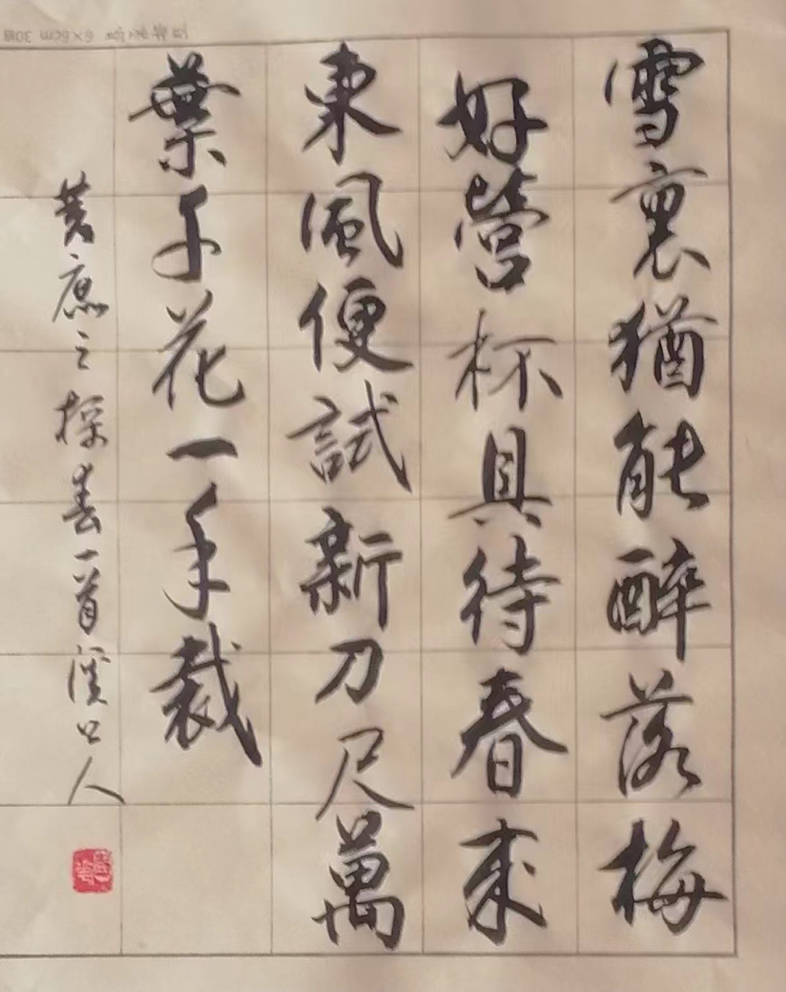 雪裏猶能醉落梅
好營杯具待春來
東風便試新刀尺萬
葉千花一手裁
黄庶之探春一首溪口人